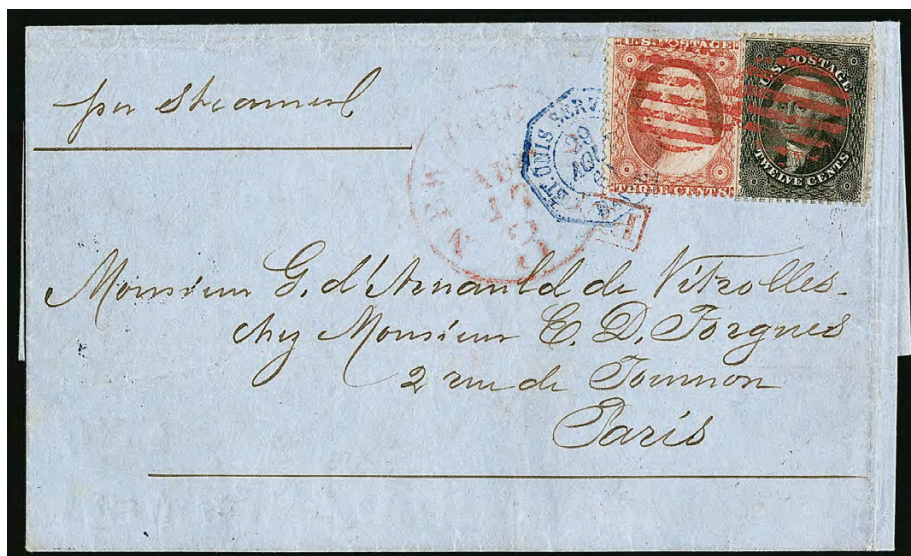 per Steamer
U.S. POSTAGE
THREE CENTS
U.S. POSTAGE
TWELVE CENTS
NEW
ET. QUIS SERV
60
Monsieur G. d'Arnauld de Vitrolles.
chez Monsieur E. D. Forgues
2 rue de Tournon
Paris